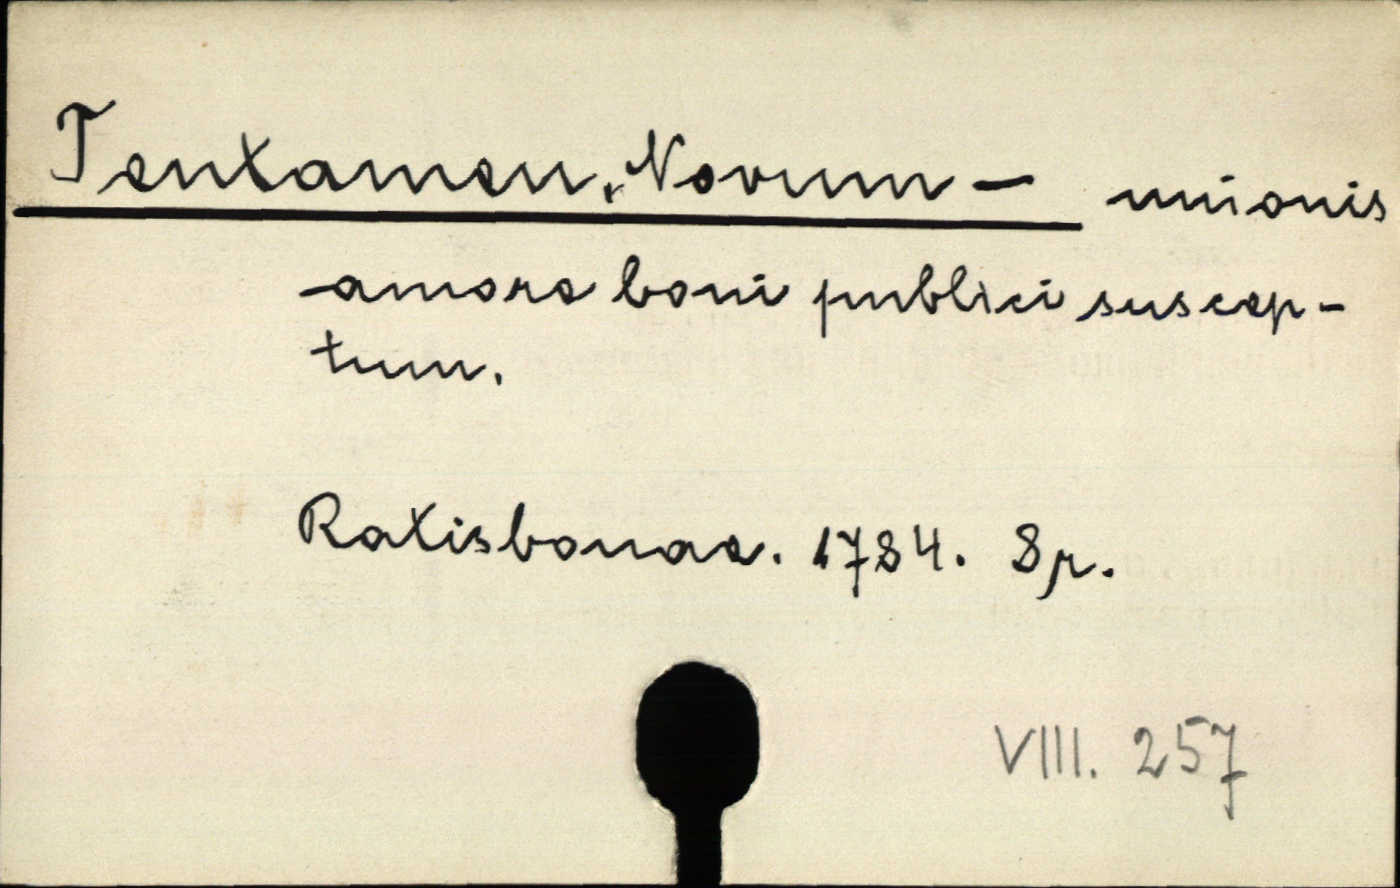 Tentamen, Novum - unionis
amore boni publici suscep-
tum.
Ratisbonae. 1784. 8r.
VIII. 257